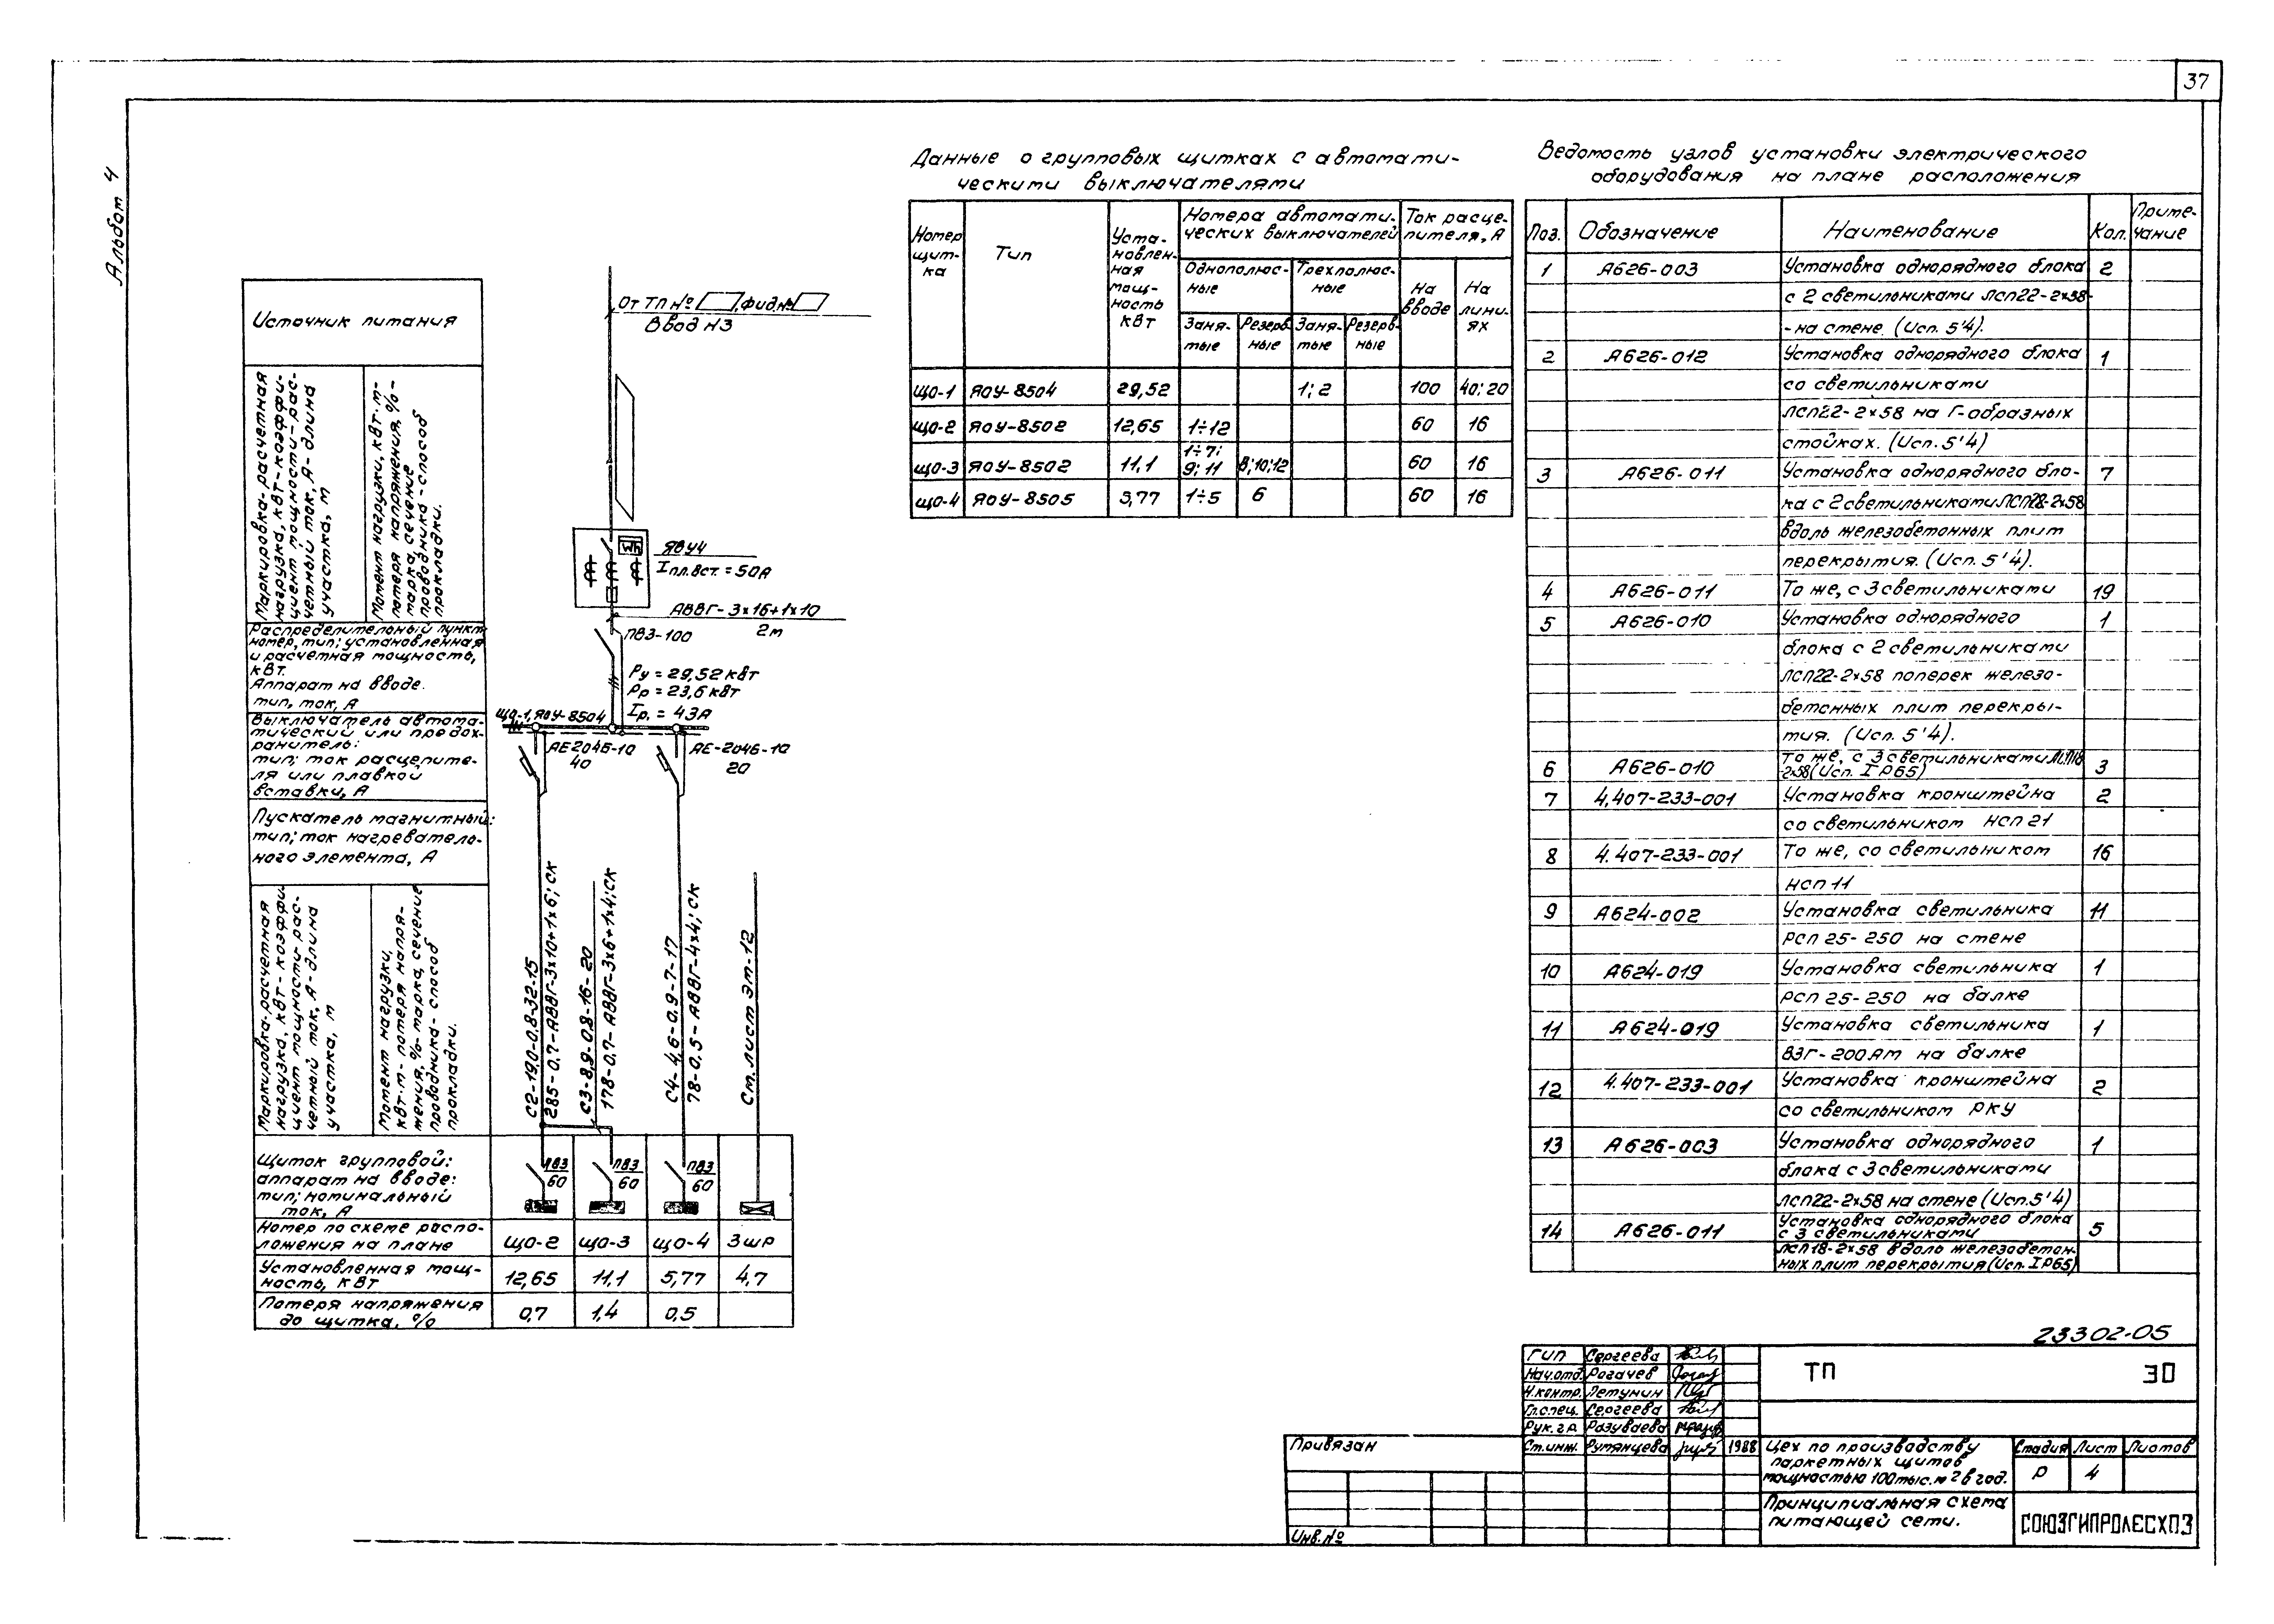 37
Альбом 4
Источник питания
Маркировка-расчетная
нагрузка, кВт-коэффи-
циент мощности-рас-
четный ток, А-длина
участка, м
Момент нагрузки, кВт·м-
потеря напряжения,%-
марка, сечение
проводника-способ
прокладки.
Распределительный пункт
номер, тип; установленная
и расчетная мощность,
кВт.
Аппарат на вводе.
тип, ток, А
Выключатель автома-
тический или предох-
ранитель:
тип; ток расцепите-
ля или плавкой
вставки, А
Пускатель магнитный:
тип; ток нагреватель-
ного элемента, А
Маркировка-расчетная
нагрузка, кВт-коэффи
циент мощности-рас-
четный ток, А-длина
участка, м
Момент нагрузки,
кВт·м-потеря напря-
жения, %-марка, сечение
проводника-способ
прокладки.
От ТП № , фид.№
Ввод Н3
Wh
ЯВУ4
Iпл.вст. = 50А
АВВГ-3×16+1×10
2м
ПВ3-100
Ру = 29,52 кВт
Рр = 23,6 кВт
Iр. = 43А
ЩО-1, ЯОУ-8504
АЕ2046-10
40
АЕ-2046-10
20
С2-19,0-0.8-32-15
285-0,7-АВВГ-3×10+1×6; СК
С3-8,9-0.8-16-20
178-0,7-АВВГ-3×6+1×4; СК
С4-4,6-0.9-7-17
78-0.5-АВВГ-4×4; СК
См. лист ЭМ-12
Щиток групповой:
аппарат на вводе:
тип; номинальный
ток, А
ПВ3
60
ПВ3
60
ПВ3
60
Номер по схеме распо-
ложения на плане
ЩО-2 ЩО-3 ЩО-4 3шр
Установленная мощ-
ность, кВт
12,65 11,1 5,77 4,7
Потеря напряжения
до щитка, %
0,7 1,4 0,5
Данные о групповых щитках с автомати-
ческими выключателями
Номер
щит-
ка
Тип
Уста-
новлен-
ная
мощ-
ность
кВт
Номера автомати-
ческих выключателей
Однополюс-
ные
Трехполюс-
ные
Заня-
тые
Резерв-
ные
Заня-
тые
Резерв-
ные
Ток расце-
пителя, А
На
вводе
На
лини-
ях
ЩО-1 ЯОУ-8504 29,52 1; 2 100 40; 20
ЩО-2 ЯОУ-8502 12,65 1÷12 60 16
ЩО-3 ЯОУ-8502 11,1 1÷7; 9; 11 8; 10; 12 60 16
ЩО-4 ЯОУ-8505 5,77 1÷5 6 60 16
Ведомость узлов установки электрического
оборудования на плане расположения
Поз. Обозначение Наименование Кол. Приме-
чание
1 А626-003 Установка однорядного блока 2
с 2 светильниками ЛСП22-2×58-
-на стене. (Исп. 5'4).
2 А626-012 Установка однорядного блока 1
со светильниками
ЛСП22-2×58 на Г-образных
стойках. (Исп. 5'4)
3 А626-011 Установка однорядного бло- 7
ка с 2 светильниками ЛСП22-2×58
вдоль железобетонных плит
перекрытия. (Исп. 5'4).
4 А626-011 То же, с 3 светильниками 19
5 А626-010 Установка однорядного 1
блока с 2 светильниками
ЛСП22-2×58 поперек железо-
бетонных плит перекры-
тия. (Исп. 5'4).
6 А626-010 То же, с 3 светильниками ЛСП18 3
2×58 (Исп. IP65)
7 4.407-233-001 Установка кронштейна 2
со светильником НСП 21
8 4.407-233-001 То же, со светильником 16
НСП 11
9 А624-002 Установка светильника 11
РСП 25-250 на стене
10 А624-019 Установка светильника 1
РСП 25-250 на балке
11 А624-019 Установка светильника 1
ВЗГ-200АМ на балке
12 4.407-233-001 Установка кронштейна 2
со светильником РКУ
13 А626-003 Установка однорядного 1
блока с 3 светильниками
ЛСП22-2×58 на стене (Исп. 5'4)
14 А626-011 Установка однорядного блока 5
с 3 светильниками
ЛСП 18-2×58 вдоль железобетон-
ных плит перекрытия (Исп. IP65)
23302-05
ГИП Сергеева
Нач.отд. Рогачев
Н.контр. Петунин
Гл.спец. Сергеева
Рук.гр. Разуваева
Ст.инж. Румянцева 1988
ТП ЭО
Привязан
Инв. №
Цех по производству
паркетных щитов
мощностью 100тыс.м2 в год.
Стадия Лист Листов
Р 4
Принципиальная схема
питающей сети.
СОЮЗГИПРОЛЕСХОЗ